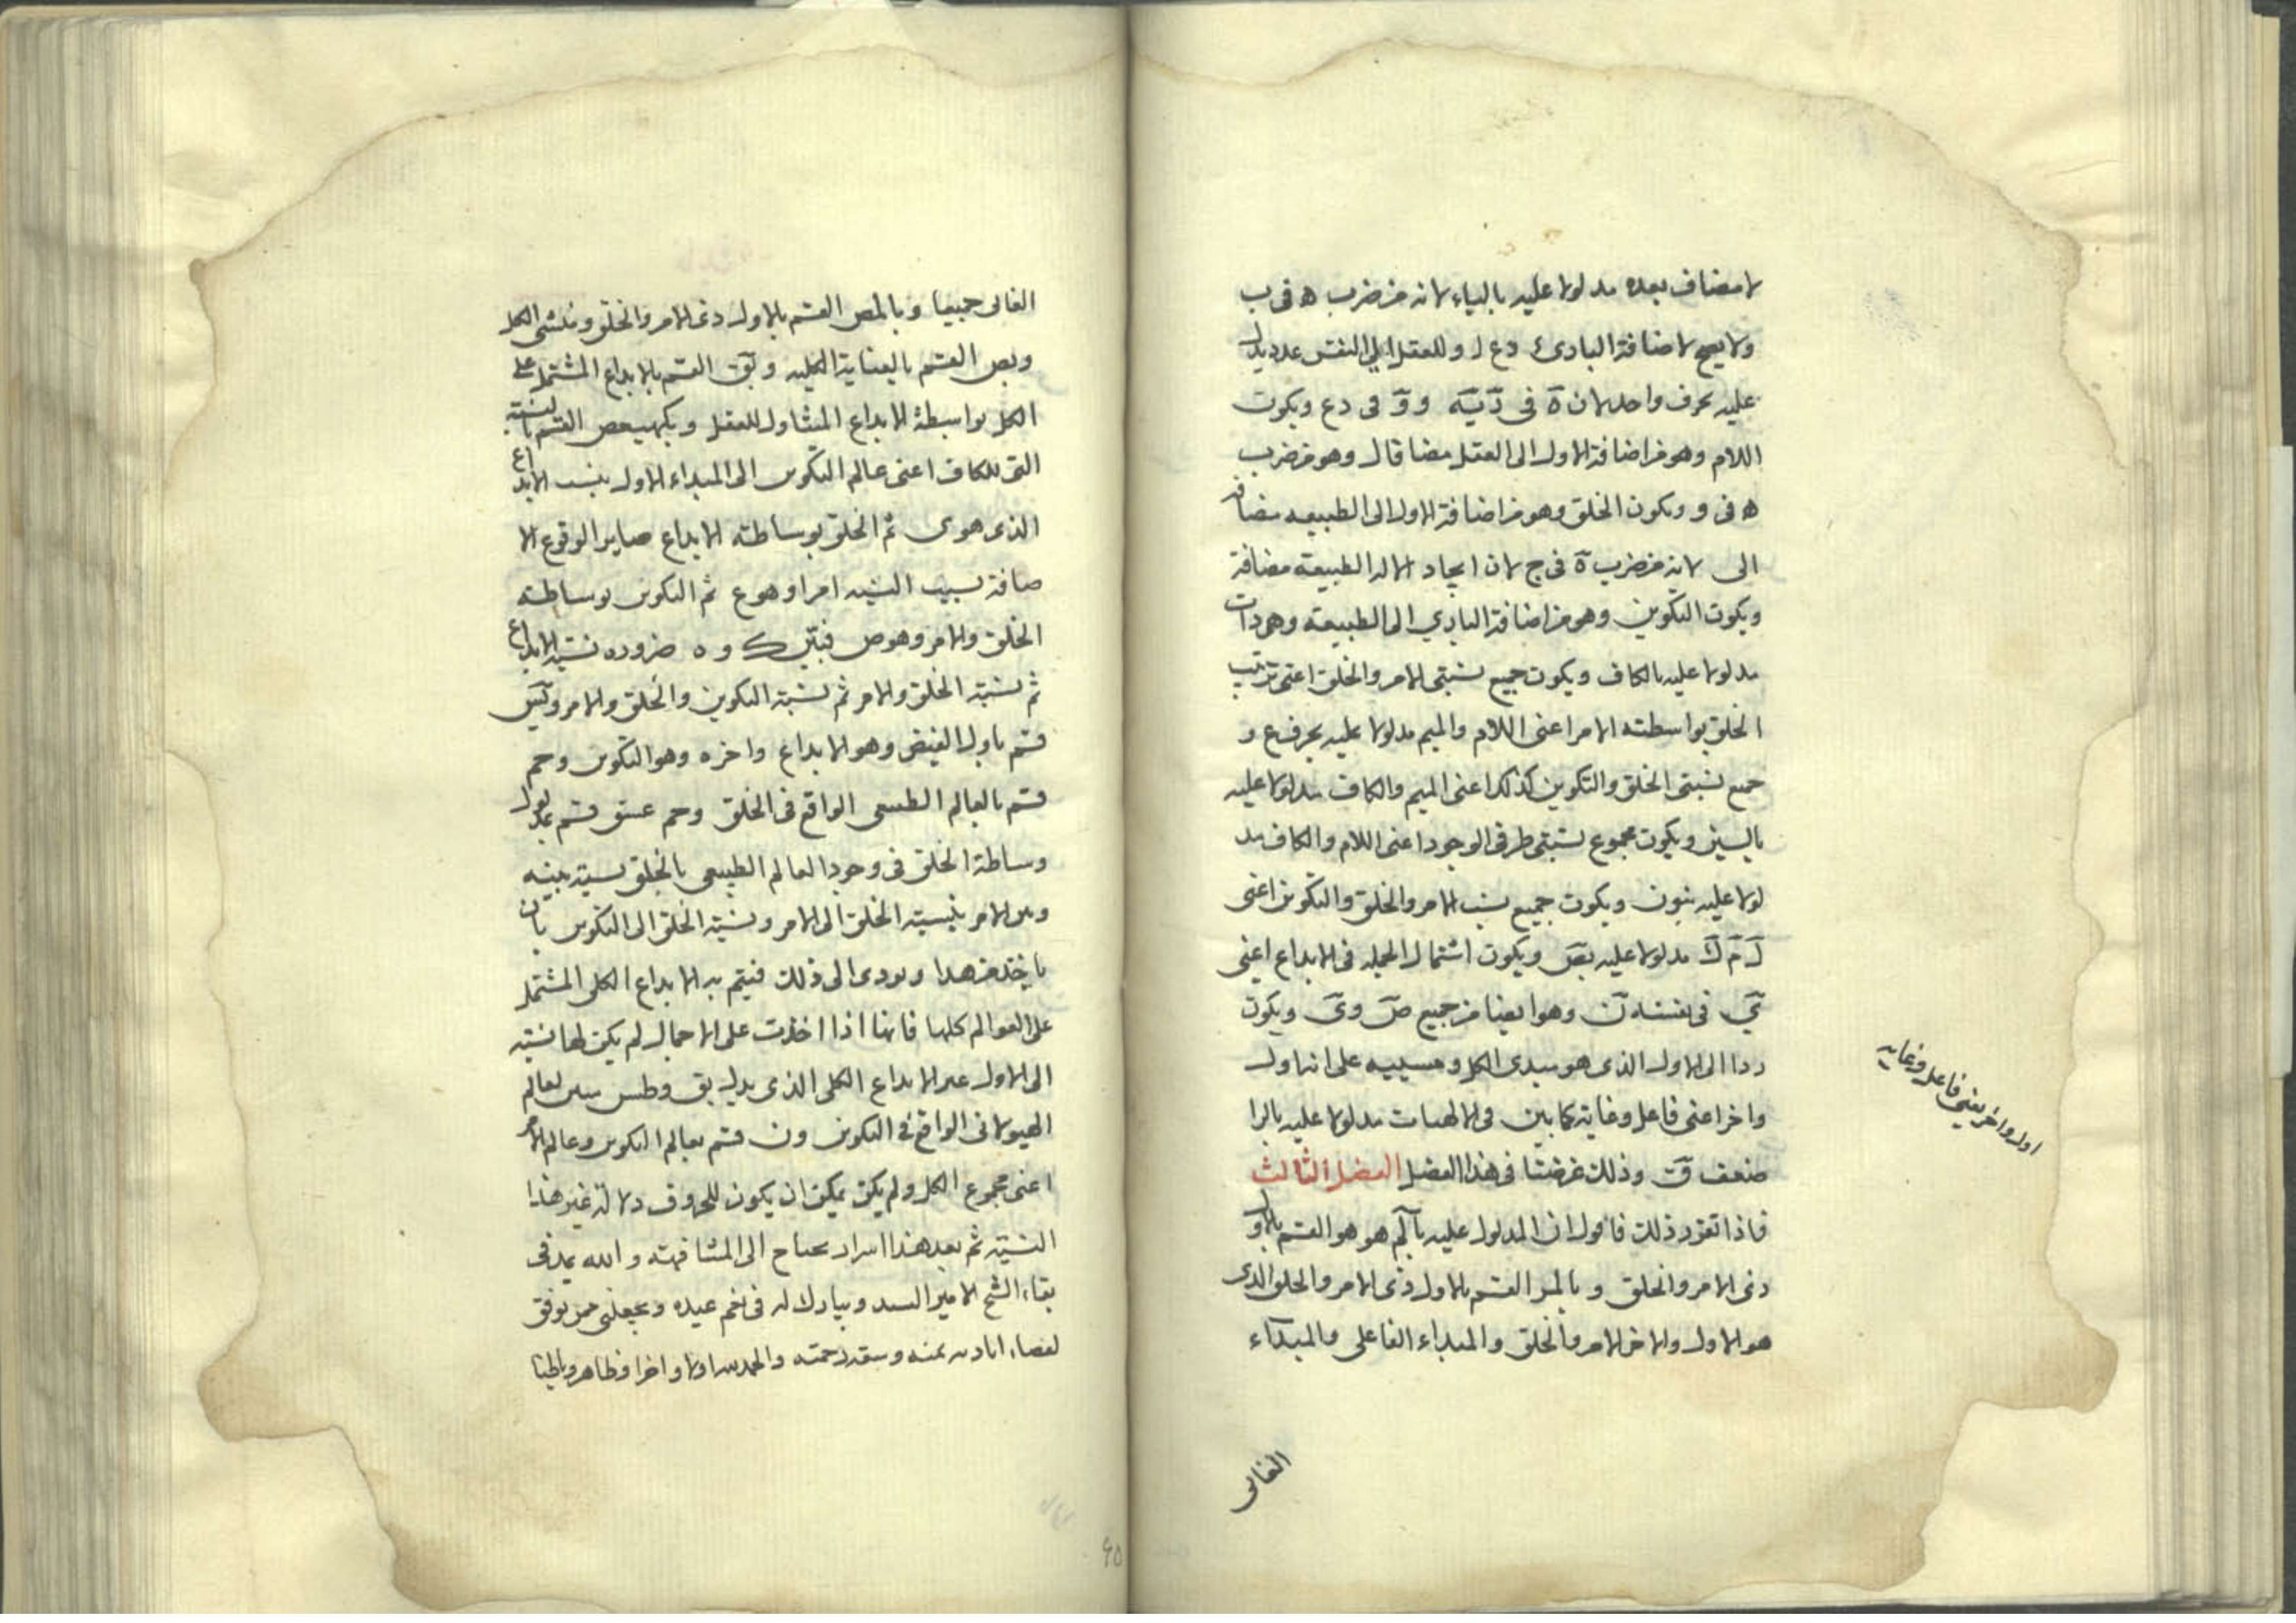 لا مضاف بعده مدلولا عليه بالياء لانه من ضرب ه فى ب
ولا يصح لاضافة البارى د ع ل وللعقل الى النفس عدد يدل
عليه بحرف واحد لان ه فى د يه و و فى د ع ويكون
اللام وهو من اضافة الاول الى العقل مضافا ل وهو من ضرب
ه فى و ويكون الخلق وهو من اضافة الاول الى الطبيعه مضافه
الى لانه من ضرب ه فى ح لان ايجاد الاله الطبيعة مضافة
ويكون التكوين وهو من اضافة البارى الى الطبيعة وهو ذات
مدلولا عليه بالكاف ويكون جميع نسبتى الامر والخلق اعنى ترتيب
الخلق بواسطته الامر اعنى اللام والميم مدلولا عليه بحرف ع و
جميع نسبتى الخلق والتكوين كذلك اعنى الميم والكاف مدلولا عليه
بالسين ويكون مجموع نسبتى طرفى الوجود اعنى اللام والكاف مد
لولا عليه بنون ويكون جميع نسب الامر والخلق والتكوين اعنى
ل م ك مدلولا عليه بص ويكون اشتمال الجمله فى الابداع اعنى
ى فى نفسه ن وهو ايضا من جميع ص وى ويكون
ردا الى الاول الذى هو مبدى الكل ومسببه على انه اول
واخر اعنى فاعل وغاية كما بين فى الالهيات مدلولا عليه بالرا
ضعف ق وذلك غرضنا فى هذا الفصل الفصل الثالث
فاذا تقرر ذلك فاقول ان المدلول عليه بالم هو هو القسم بالاول
ذى الامر والخلق وبالمر القسم بالاول ذى الامر والخلق الذى
هو الاول والاخر الامر والخلق والمبداء الفاعلى والمبداء
اول واخر يعنى فاعل وغايه
الغاى
الغاى جميعا وبالمص القسم بالاول ذى الامر والخلق ومنشى الكل
وبص القسم بالعناية الكليه وبق القسم بالابداع المشتمل على
الكل بواسطة الابداع المتناول للعقل وبكهيعص القسم بالنسبة
التى للكاف اعنى عالم التكوين الى المبداء الاول بنسب الابداع
الذى هو ى ثم الخلق بوساطته الابداع صاير الوقوع الا
ضافة بسبب النسبه امرا وهو ع ثم التكوين بوساطته
الخلق والامر وهو ص فبين ك و ه ضروره نسبة الابداع
ثم نسبة الخلق والامر ثم نسبة التكوين والخلق والامر ويس
قسم باول الفيض وهو الابداع واخره وهو التكوين وحم
قسم بالعالم الطبيعى الواقع فى الخلق وحم عسق قسم بمدلول
وساطة الخلق فى وجود العالم الطبيعى بالخلق بنسبة بينه
وبين الامر بنسبة الخلق الى الامر ونسبة الخلق الى التكوين بان
ياخذ من هذا ويودى الى ذلك فيتم به الابداع الكلى المشتمل
على العوالم كلها فانها اذا اخذت على الاجمال لم يكن لها نسبة
الى الاول غير الابداع الكلى الذى يدل بق وطس يمين لعالم
الهيولانى الواقع فى التكوين ون قسم بعالم التكوين وعالم الامر
اعنى مجموع الكل ولم يكن يمكن ان يكون للحروف دلالة غير هذا
النسبة ثم بعد هذا اسرار يحتاج الى المشافهته والله يمد فى
بقاء الشيخ الامير السيد ويبارك له فى نعم عيده ويجعلنى ممن يوفق
لقضاء اياديه بمنه وسعة رحمته والحمد لله اولا واخرا وظاهر وباطنا
٤٥